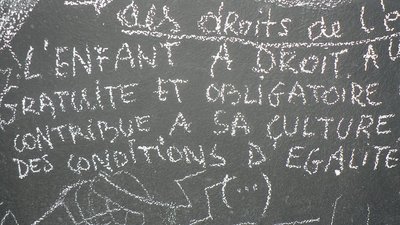 des droits de l
L'ENFANT A DROIT A U
GRATUITE ET OBLIGATOIRE
CONTRIBUE A SA CULTURE
DES CONDITIONS D'EGALITE
(...)